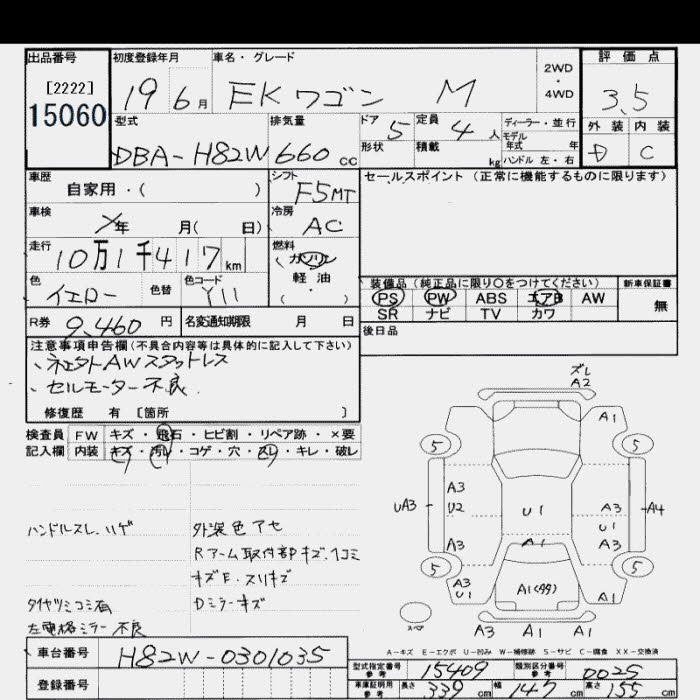 出品番号
[2222]
15060
初度登録年月
19 6月
車名・グレード
EKワゴン M
2WD
・
4WD
評価点
3.5
外装 内装
D C
型式
DBA-H82W
排気量
660 cc
ドア 5
形状
定員 4 人
積載 kg
ディーラー・並行
モデル
年式 年
ハンドル 左・右
車歴
自家用・( )
シフト
F5MT
セールスポイント(正常に機能するものに限ります)
車検
年 月( 日)
冷房
AC
走行
10万1千417 km
燃料
ガソリン
軽油
( ・ )
色
イエロー
色替
色コード
Y11
装備品(純正品に限り○をつけてください)
PS PW ABS エアB AW
SR ナビ TV カワ
新車保証書
無
R券 9,460 円
名変通知期限 月 日
後日品
注意事項申告欄(不具合内容等は具体的に記入して下さい)
、社外AWスタットレス
、セルモーター不良
修復歴 有 [箇所 ]
検査員 FW キズ・飛石・ヒビ割・リペア跡・×要
記入欄 内装 キズ・汚レ・コゲ・穴・スレ・キレ・破レ
ハンドルスレ、ハゲ
外装色アセ
Rアーム取付部キズ、凹コミ
キズE・スリキズ
タイヤツミコミ有
Dミラーキズ
左電格ミラー不良
ズレ
A2
A1
5 5
UA3
A3
U2
U1
A3
U1
A4
A3
A1
A3
5 5
A3
U1
A1(多)
A1
スペア
A3 A1 A1
A-キズ E-エクボ U-凹み W-補修跡 S-サビ C-腐食 XX-交換済
車台番号 H82W-0301035
登録番号
型式指定番号
参考
15409
類別区分番号
参考
0025
車庫証明用
参考
長さ 339 cm 幅 147 cm 高さ 155 cm